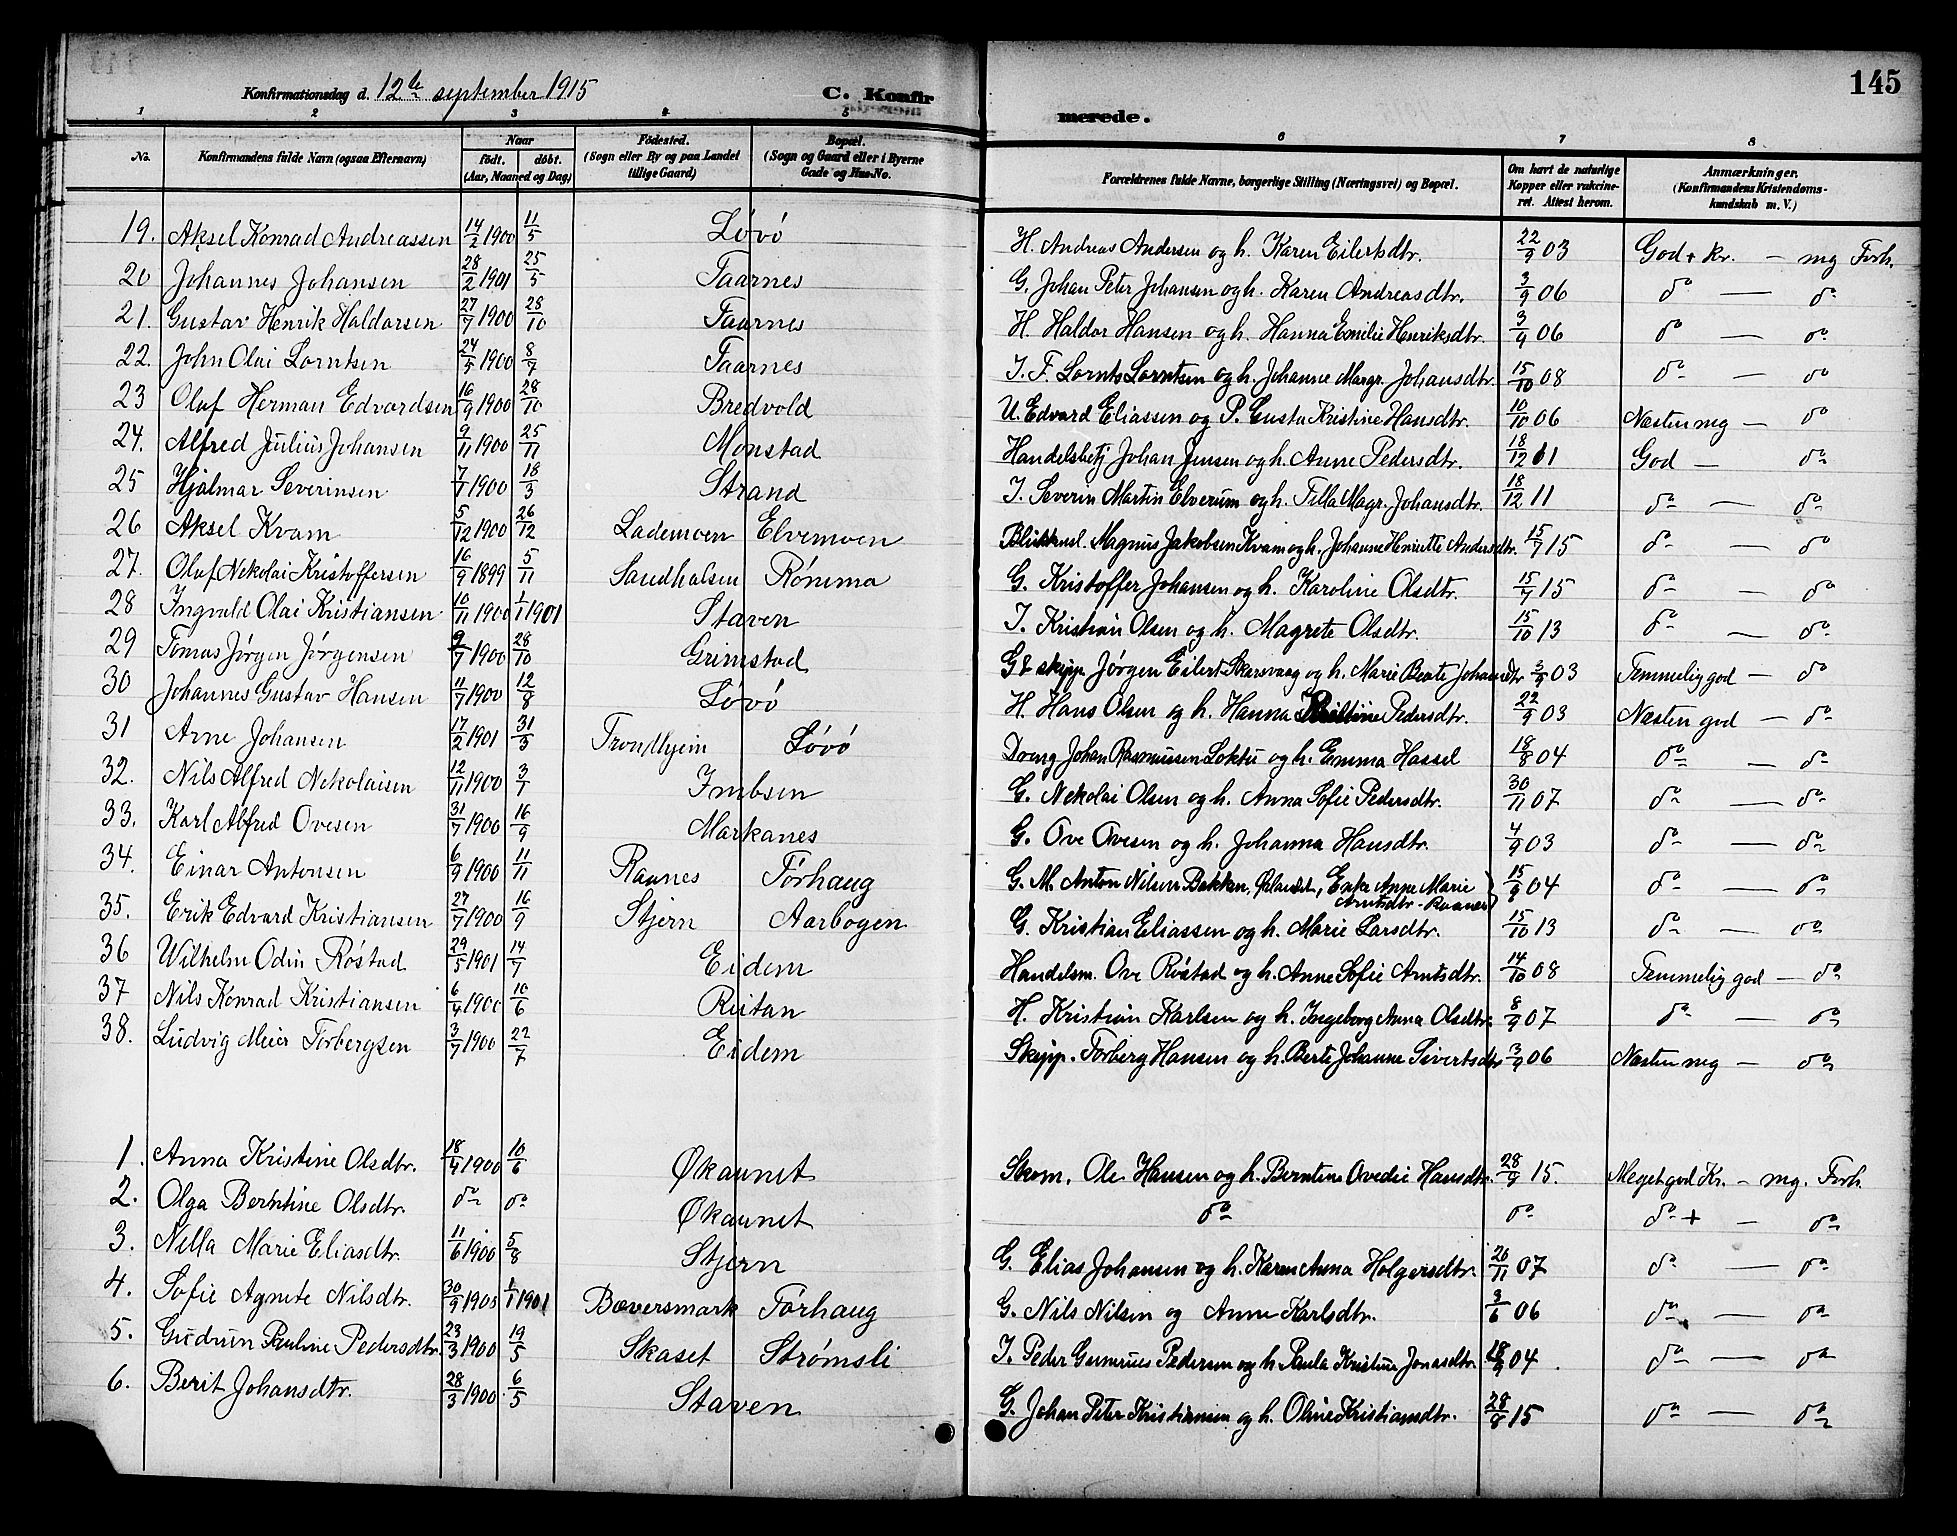 145
Konfirmationsdag d. 12te september 1915 C. Konfirmerede.
1 2 3 4 5 6 7 8
No. Konfirmandens fulde Navn (ogsaa Efternavn) Naar født. døbt. (Aar, Maaned og Dag) Fødested. (Sogn eller By og paa Landet tillige Gaard) Bopæl. (Sogn og Gaard eller i Byerne Gade og Hus-No. Forældrenes fulde Navne, borgerlige Stilling (Næringsvei) og Bopæl. Om havt de naturlige Kopper eller vakcineret. Attest herom. Anmærkninger. (Konfirmandens Kristendomskundskab m. V.)
19. Aksel Konrad Andreassen 14/2 1900 11/5 Løvø H. Andreas Andersen og h. Karen Eilertsdtr. 22/9 03 God + kr. — mg Forh.
20 Johannes Johansen 28/2 1901 25/5 Taarnes G. Johan Peter Johansen og h. Karen Andreasdtr. 3/9 06 do — do
21. Gustav Henrik Haldorsen 27/7 1900 28/10 Taarnes H. Haldor Hansen og h. Hanna Emilie Henriksdtr. 3/9 06 do — do
22. John Olai Lorntsen 24/5 1900 8/7 Taarnes I. F. Lornts Lorntsen og h. Johanne Margr. Johansdtr. 15/10 08 do — do
23 Oluf Herman Edvardsen 16/9 1900 28/10 Bredvold U. Edvard Eliassen og P. Gusta Kristine Hansdtr. 10/10 06 Næsten mg — do
24. Alfred Julius Johansen 9/11 1900 25/11 Monstad Handelsbetj Johan Jensen og h. Anne Pedersdtr. 18/12 01 God — do
25 Hjalmar Severinsen 7/7 1900 18/3 Strand I. Severin Martin Elverum og h. Tilla Magr. Johansdtr. 18/12 11 do — do
26 Aksel Kvam 5/12 1900 26/12 Lademoen Elvemoen Magnus Jakobsen Kvam og h. Johanne Henriette Andersdtr. 15/7 15 do — do
27. Oluf Nekolai Kristoffersen 16/9 1899 5/11 Sandhalsen Rømma G. Kristoffer Johansen og h. Karoline Olsdtr. 15/7 15 do — do
28 Ingvald Olai Kristiansen 10/11 1900 1/1 1901 Staven I. Kristian Olsen og h. Magrete Olsdtr. 15/10 13 do — do
29 Tomas Jørgen Jørgensen 9/7 1900 28/10 Grimstad G & skipp. Jørgen Eilert Skarsvaag og h. Marie Beate Johansdtr 3/9 03 Temmelig god — do
30 Johannes Gustav Hansen 11/7 1900 12/8 Løvø H. Hans Olsen og h. Hanna Pedersdtr. 22/9 03 Næsten god — do
31 Arne Johansen 17/2 1901 31/3 Trondhjem Løvø Dreng Johan Rasmussen Loktu og h. Emma Hassel 18/8 04 do — do
32. Nils Alfred Nekolaisen 12/11 1900 3/1 Imbsen G. Nekolai Olsen og h. Anna Sofie Pedersdtr. 30/11 07 do — do
33. Karl Alfred Ovesen 31/7 1900 16/9 Markanes G. Ove Ovesen og h. Johanna Hansdtr. 4/9 03 do — do
34. Einar Antonsen 6/9 1900 11/11 Raanes Tørhaug G. M. Anton Nilsen Bakken, Enke Anne Marie Arntsdtr. Raanes) 15/9 04 do — do
35. Erik Edvard Kristiansen 27/7 1900 16/9 Stjern Aarbogen G. Kristian Eliassen og h. Marie Larsdtr. 15/10 13 do — do
36 Wilhelm Odin Røstad 29/5 1901 14/7 Eidem Handelsm. Ove Røstad og h. Anne Sofie Arntsdtr. 14/10 08 Temmelig god — do
37 Nils Konrad Kristiansen 6/4 1900 10/6 Ruitan H. Kristian Karlsen og h. Ingeborg Anna Olsdtr. 8/9 07 do — do
38. Ludvig Meier Torbergsen 3/7 1900 22/7 Eidem Skipp. Torberg Hansen og h. Berte Johanne Sivertsdtr 3/9 06 Næsten mg — do
1. Anna Kristine Olsdtr. 18/4 1900 10/6 Økaunet Skom. Ole Hansen og h. Berntine Ovedie Hansdtr. 28/9 15. Meget god Kr. — mg. Forh.
2. Olga Berntine Olsdtr. do do Økaunet do do do + — do
3. Nella Marie Eliasdtr. 11/6 1900 5/8 Stjern G. Elias Johansen og h. Karen Anna Holgersdtr. 26/11 07 do — do
4. Sofie Agnete Nilsdtr. 30/9 1900 1/1 1901 Bæversmark Tørhaug G. Nils Nilsen og Anne Karlsdtr. 3/6 06 do — do
5. Gudrun Pauline Pedersdtr. 23/3 1900 19/5 Skaset Strømsli I. Peder Gunerius Pedersen og h. Paula Kristine Jonasdtr. 18/9 04. do — do
6. Berit Johansdtr. 28/3 1900. 6/5 Staven G. Johan Peter Kristiansen og h. Oline Kristiansdtr. 28/8 15 do — do